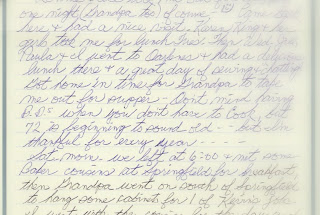 one night, Grandpa too, of course
here & had a nice visit. Karen King & her
girls took me for lunch Tues. Then Wed. Jane,
Paula & I went to Carlenes & had a delicious
lunch there & a great day of sewing &
Got home in time for Grandpa to take
me out for supper - Don't mind having
B.D.s when you don't have to cook, but
72 is beginning to sound old -- but I'm
thankful for every year - - - -
Sat. morn. we left at 6:00 & met some
Baker cousins at Springfield for breakfast,
then Grandpa went on south of Springfield
to hang some cabinet for 1 of
visit with the